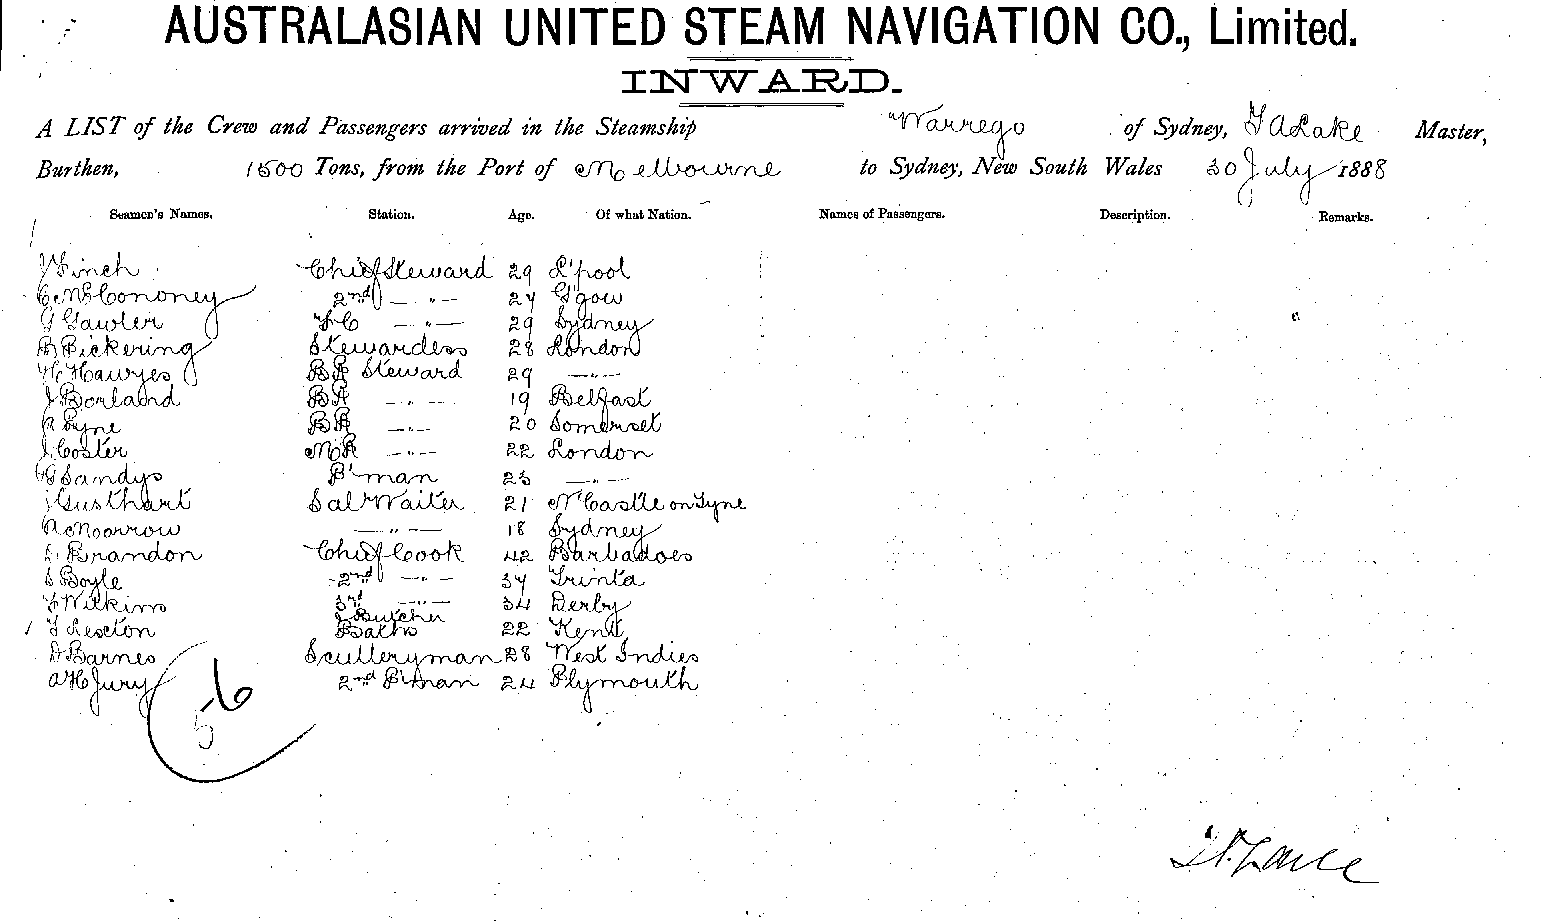 AUSTRALASIAN UNITED STEAM NAVIGATION CO., Limited.
INWARD.
A LIST of the Crew and Passengers arrived in the Steamship "Warrego of Sydney, T A Lake Master,
Burthen, 1500 Tons, from the Port of Melbourne to Sydney, New South Wales 30 July 1888
Seamen's Names. Station. Age. Of what Nation. Names of Passengers. Description. Remarks.
J Finch Chief Steward 29 L'pool
C McCononey 2nd — " — 27 G'gow
G Gawler F C — " — 29 Sydney
B Pickering Stewardess 28 London
H Hawyes BR Steward 29 — " —
J Borland BR — " — 19 Belfast
A Pyne BR — " — 20 Somerset
J Coster MR — " — 22 London
W G Sandys P'man 23 — " —
J Gusthart Salr Waiter 21 N'Castle on Tyne
A Morrow — " — 18 Sydney
Brandon Chief Cook 42 Barbadoes
S Boyle 2nd — " — 37
F Wilkins 3rd — " — 34 Derby
T Lexton Butcher Baths 22 Kent
D Barnes Sculleryman 28 West Indies
A H Jury 2nd P'man 24 Plymouth
56